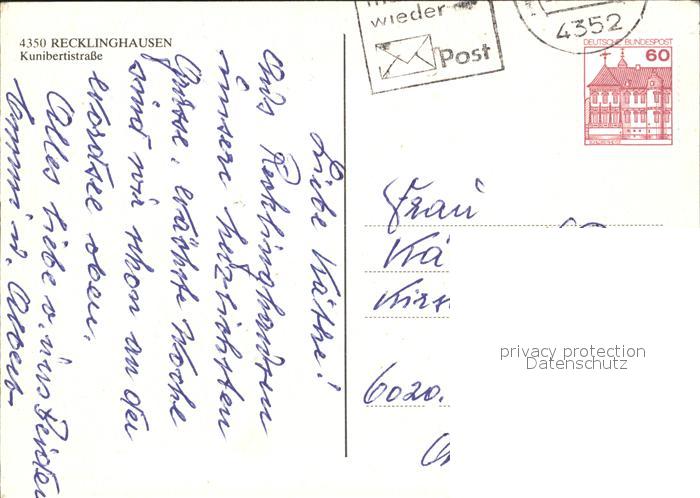 4350 RECKLINGHAUSEN
Kunibertistraße
wieder
Post
4352
DEUTSCHE BUNDESPOST
60
Liebe Käthe!
Aus Recklinghausen
unsere herzlichsten
Grüsse, nächste Woche
sind wir schon an der
Nordsee oben.
Alles Liebe v. uns Beiden
u. Albert
Frau
Kä
6020.
privacy protection
Datenschutz